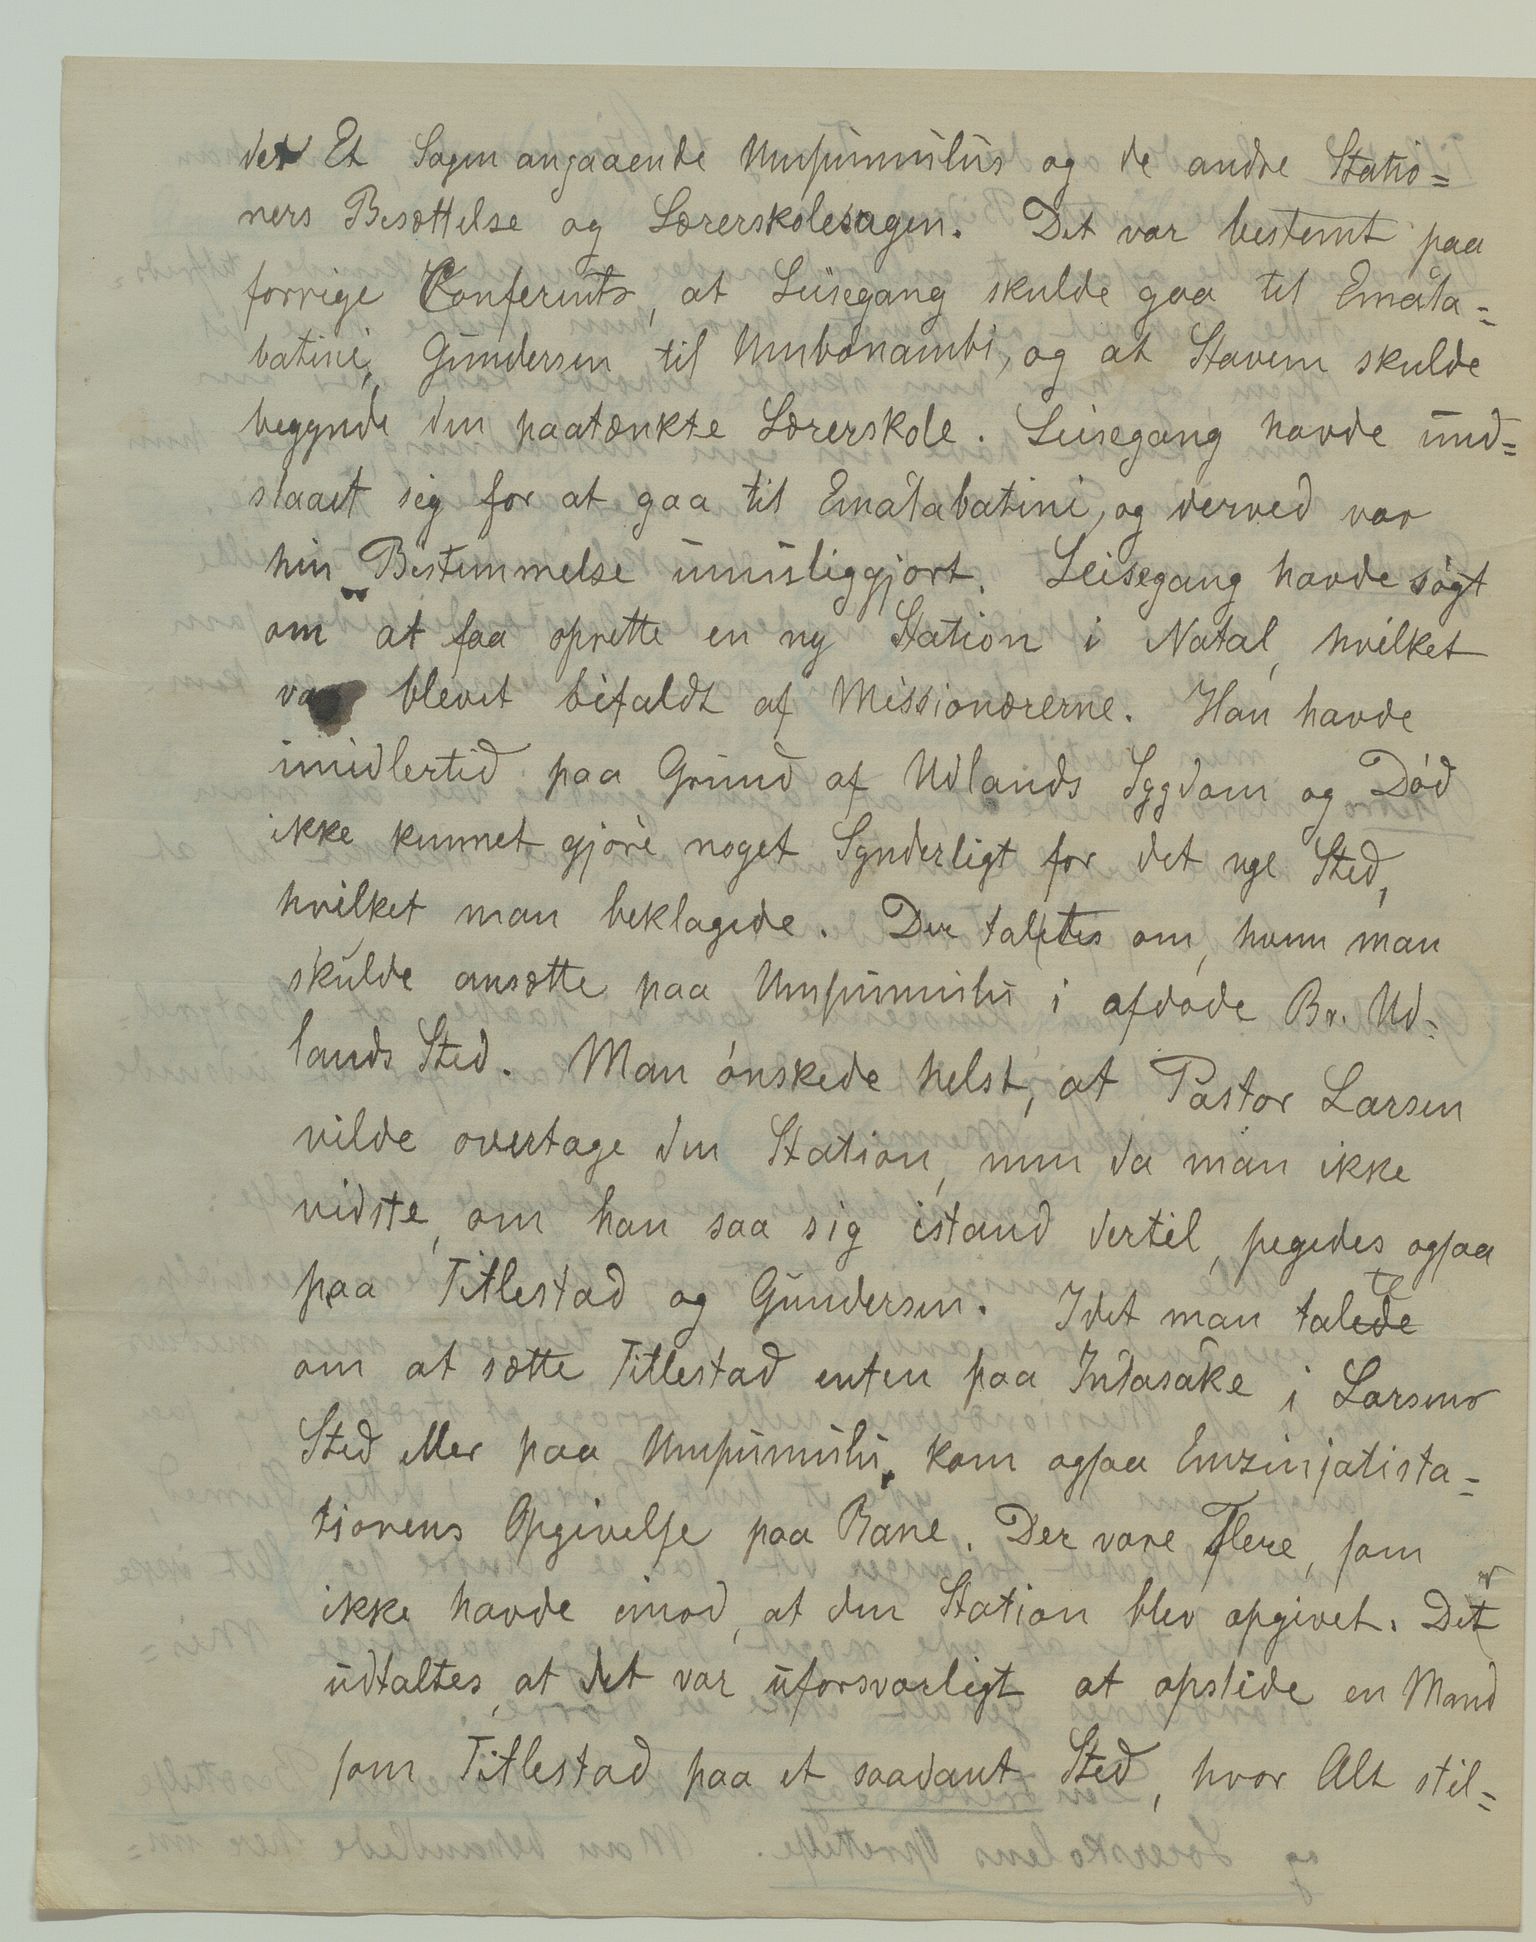 det Et Sagen angaaende Umpumulus og de andre Statio=
ners Besættelse og Lærerskolesagen. Det var bestemt paa
forrige Conferents, at Leisegang skulde gaa til Emåla=
batini, Gundersen til Umbonambi, og at Stavem skulde
begynde den paatænkte Lærerskole. Leisegang havde und=
slaaet sig for at gaa til Emålabatini, og derved var
hin Bestemmelse umuliggjort. Leisegang havde søgt
om at faa oprette en ny Station i Natal, hvilket
var blevet bifaldt af Missionærerne. Han havde
imidlertid paa Grund af Udlands Sygdom og Død
ikke kunnet gjøre noget Synderligt for det nye Sted,
hvilket man beklagede. Der taltes om, hvem man
skulde ansætte paa Umpumulu i afdøde Br. Ud=
lands Sted. Man ønskede helst, at Pastor Larsen
vilde overtage den Station, men da man ikke
vidste, om han saa sig istand dertil, pegedes ogsaa
paa Titlestad og Gundersen. Idet man talte
om at sætte Titlestad enten paa Intasåke i Larsens
Sted eller paa Umpumulu, kom ogsaa Emzinjatista=
tionens Opgivelse paa Bane. Der vare Flere, som
ikke havde imod, at den Station blev opgivet. Der
udtaltes, at det var uforsvarligt at opslide en Mand
som Titlestad paa et saadant Sted, hvor Alt stil=